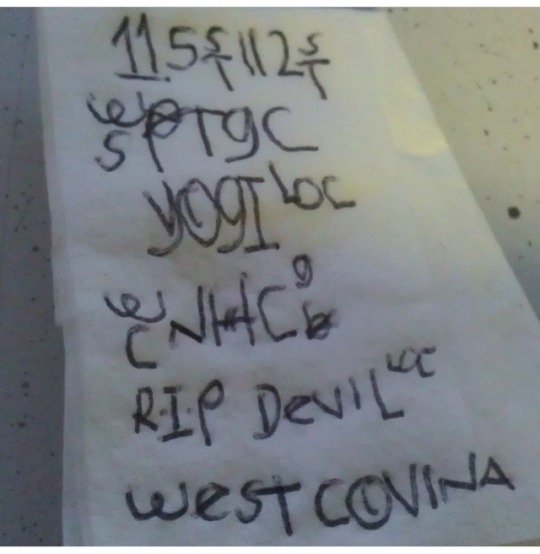 115ST 112ST
WS PTGC
YOGI LOC
WC NHC gb
R.I.P DEVIL LOC
WEST COVINA